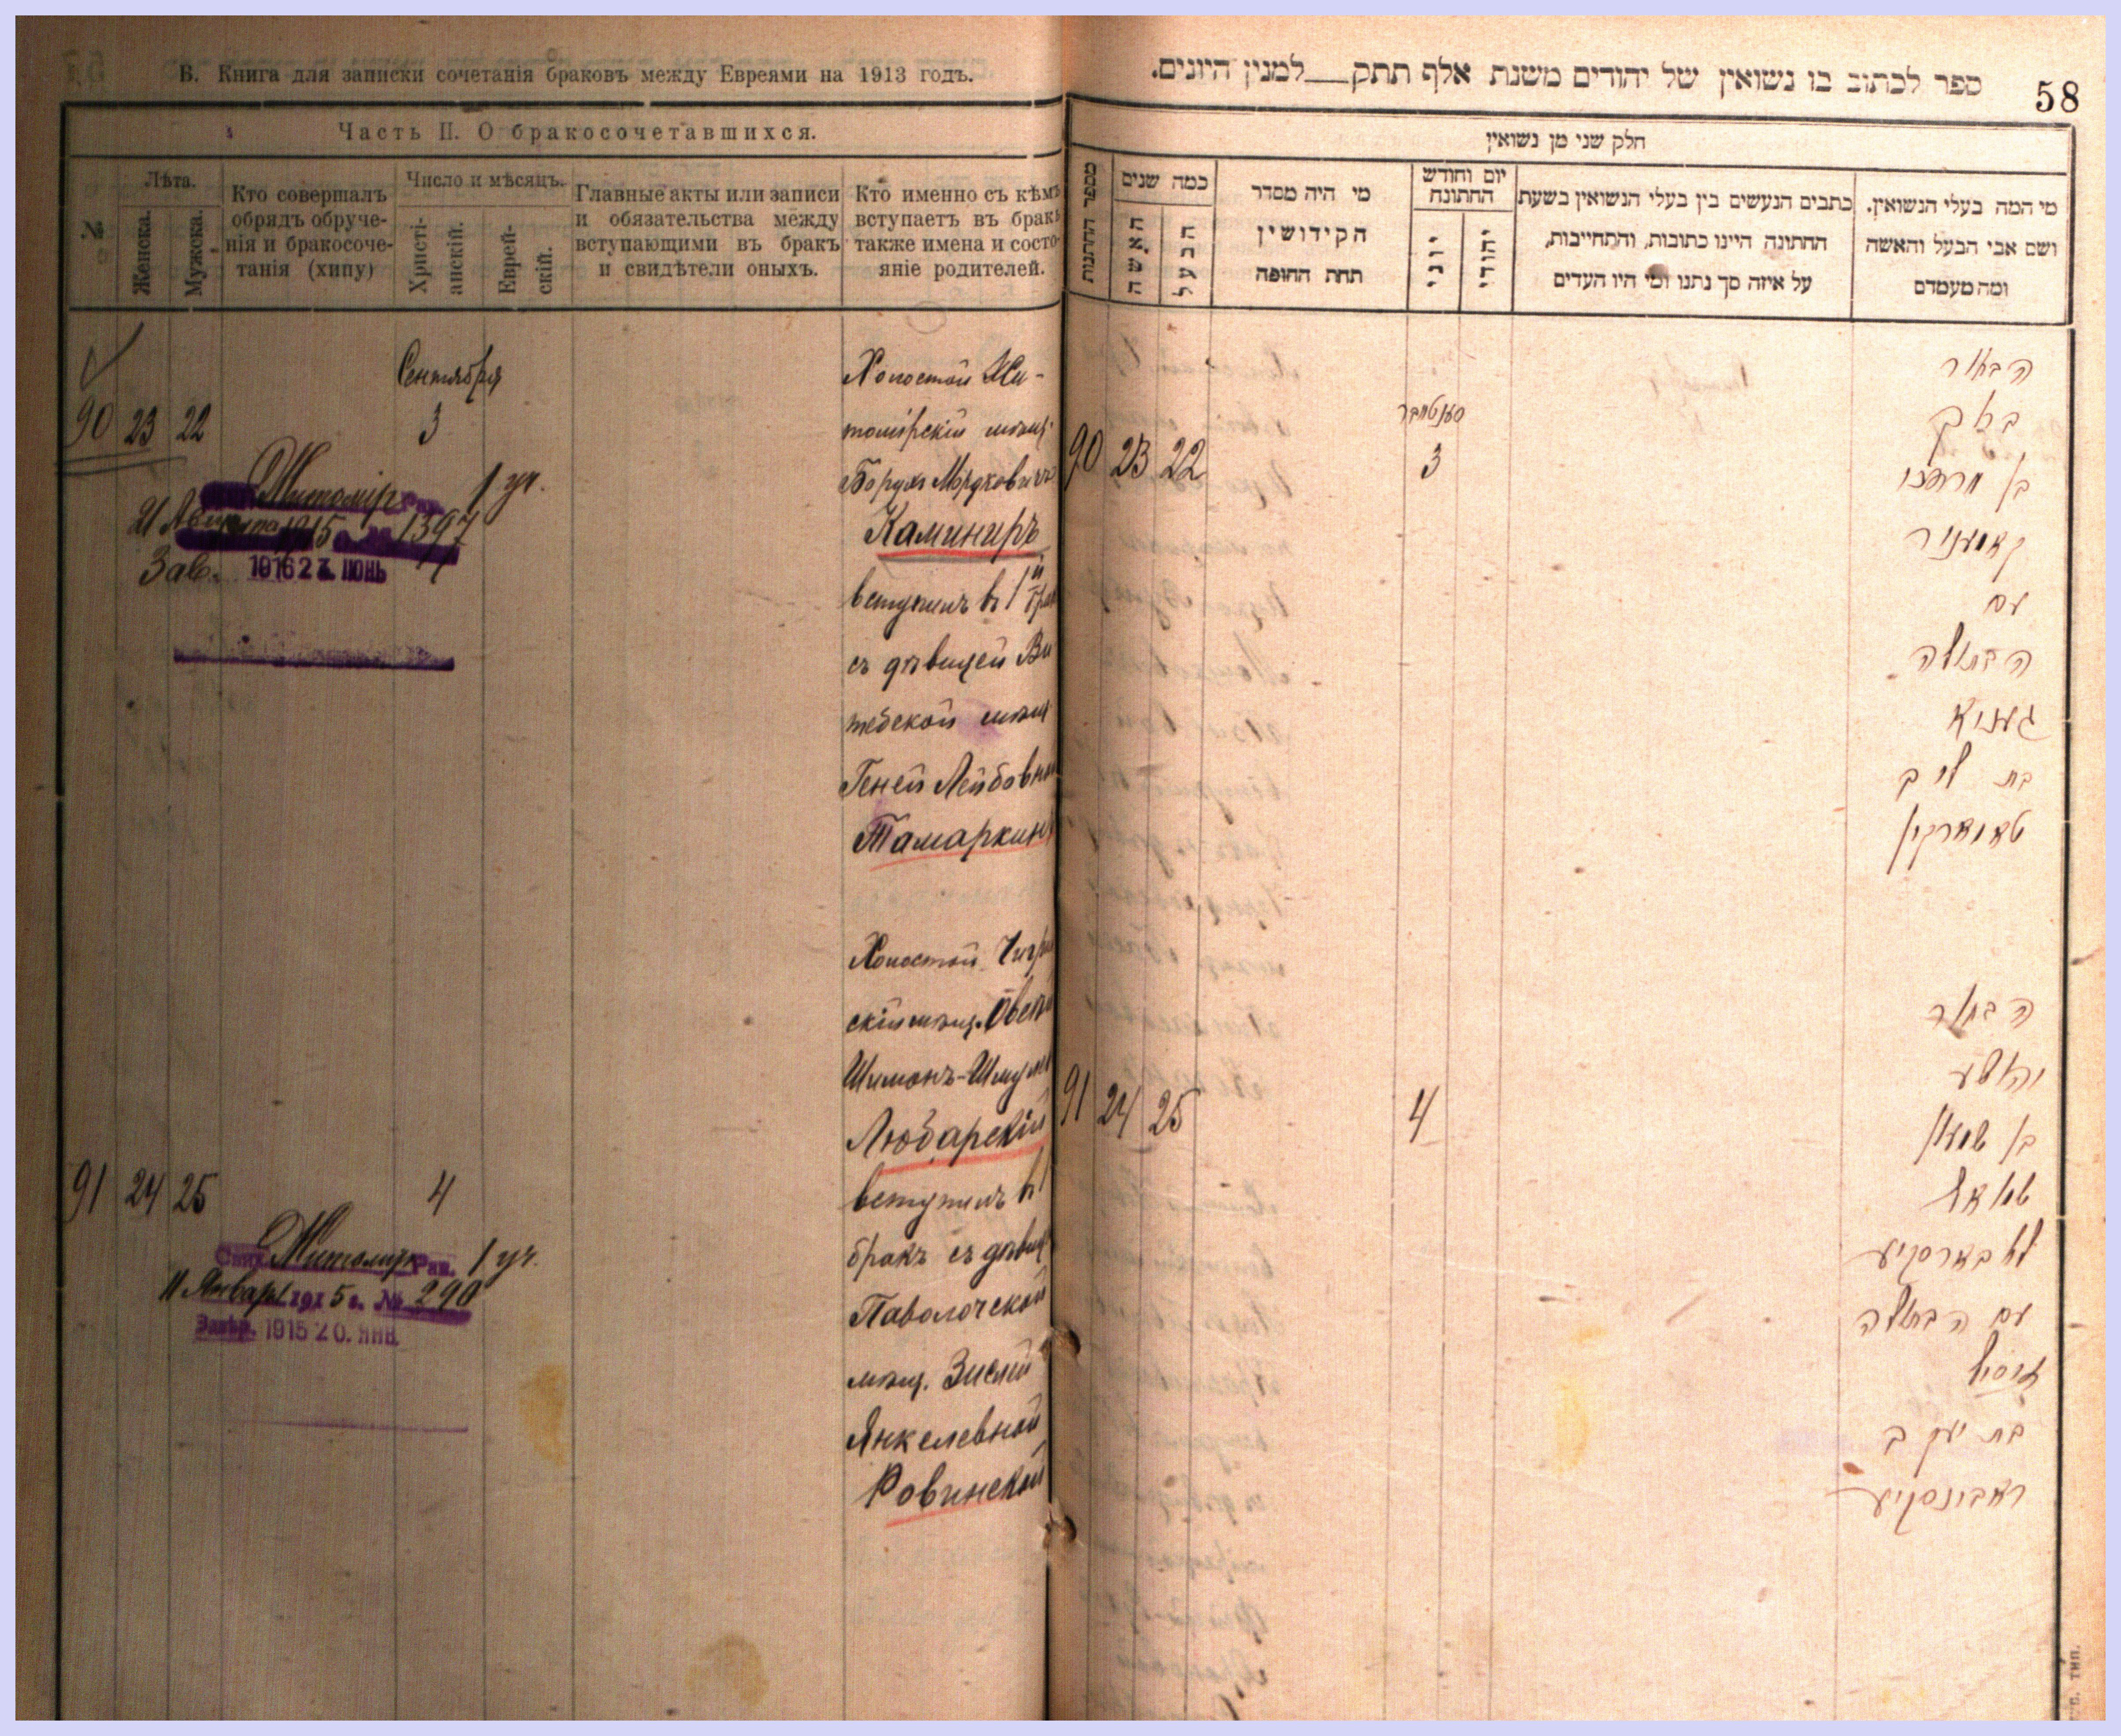 Б. Книга для записки сочетанія браковъ между Евреями на 1913 годъ.
Часть II. О бракосочетавшихся.
№
Лѣта.
Женска.
Мужска.
Кто совершалъ
обрядъ обруче-
нія и бракосоче-
танія (хипу)
Число и мѣсяцъ.
Христі-
анскій.
Еврей-
скій.
Главные акты или записи
и обязательства между
вступающими въ бракъ
и свидѣтели оныхъ.
Кто именно съ кѣмъ
вступаетъ въ бракъ
также имена и состо-
яніе родителей.
Сентября
90 23 22 3
Житомір 1 уч.
21 Августа 1915 1397
Зав. 1916 27. ІЮНЬ
Холостой Жи-
томірскій мѣщ.
Борухъ Мордковичъ
Каминиръ
вступилъ въ 1й брак
съ дѣвицей Ви
тебской мѣщ
Геней Лейбовной
Тамаркин
Холостой
скій мѣщ.
Шимонъ-Шмул
Любарскій
вступилъ в 1
бракъ съ дѣвиц
Паволочской
мѣщ. Зислей
Янкелевной
Ровинской
91 24 25 4
Житомир Рав. 1 уч.
11 Января 1915 г. № 290
Завѣр. 1915 20. ЯНВ.
ספר לכתוב בו נשואין של יהודים משנת אלף תתק__למנין היונים.
58
חלק שני מן נשואין
מספר החתנות
כמה שנים
האשה
הבעל
מי היה מסדר
הקידושין
תחת החופה
יום וחודש
החתונה
יוני
יהודי
כתבים הנעשים בין בעלי הנשואין בשעת
החתונה היינו כתובות, והתחייבות,
על איזה סך נתנו ומי היו העדים
מי המה בעלי הנשואין.
ושם אבי הבעל והאשה
ומה מעמדם
סענטאבר
90 23 22 3
הבחור
ברוך
בן מרדכי
קאמעניר
עם
הבתולה
געניא
בת ליב
טאמארקין
91 24 25 4
הבחור
יהושע
בן שמעון
שמואל
ליובארסקיע
עם הבתולה
זיסיל
בת יעקב
ראבינסקיע